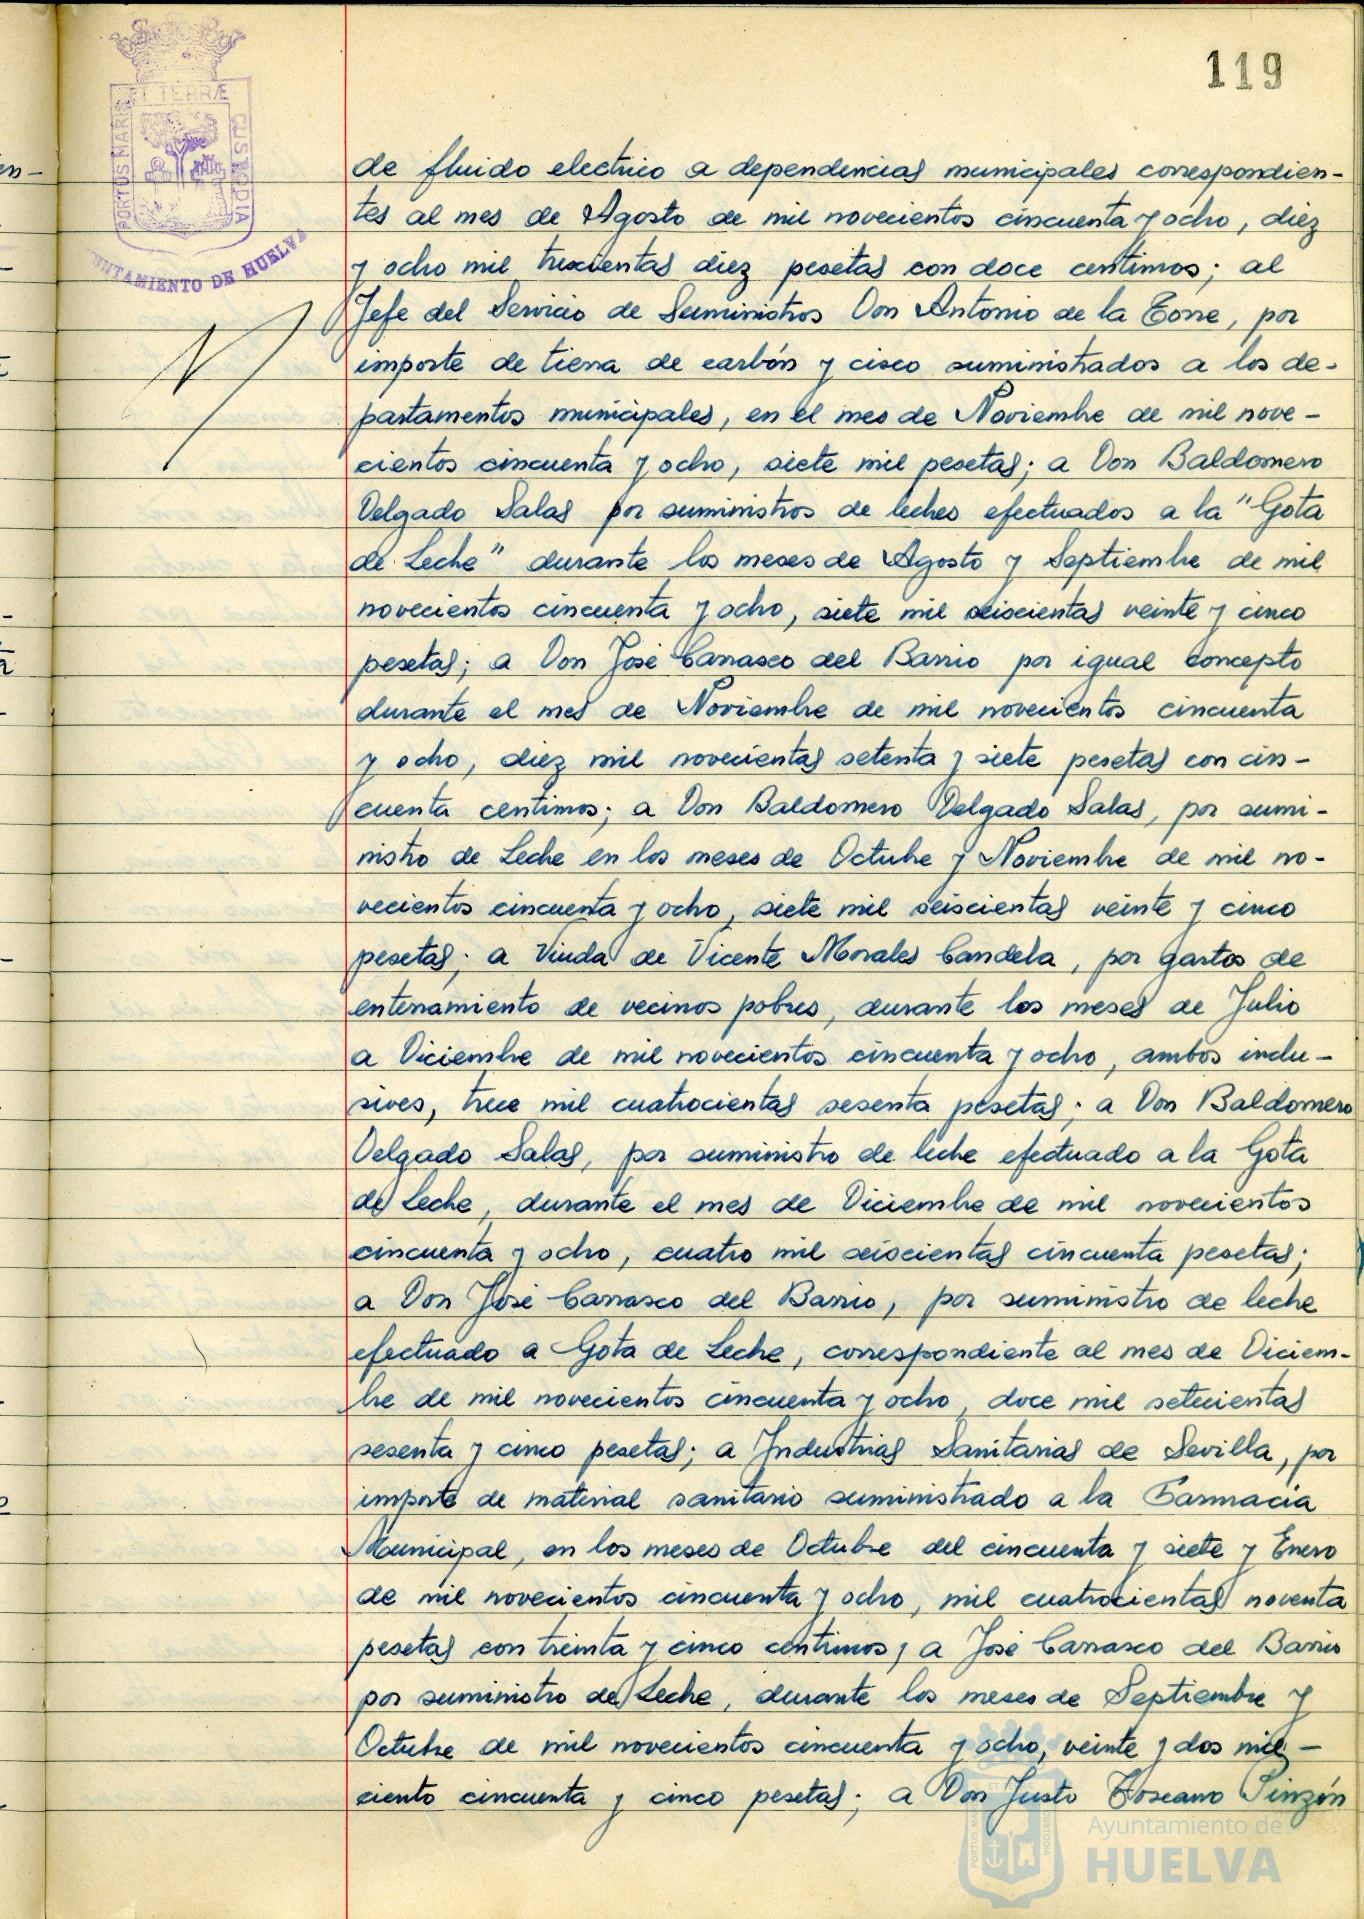 119
PORTUS MARIS ET TERRÆ CUSTODIA
UNTAMIENTO DE HUELVA
de fluido electrico a dependencias municipales correspondien-
tes al mes de Agosto de mil novecientos cincuenta y ocho, diez
y ocho mil trescientas diez pesetas con doce centimos; al
Jefe del Servicio de Suministros Don Antonio de la Torre, por
importe de tierra de carbón y cisco suministrados a los de-
partamentos municipales, en el mes de Noviembre de mil nove-
cientos cincuenta y ocho, siete mil pesetas; a Don Baldomero
Delgado Salas por suministros de leches efectuados a la "Gota
de Leche" durante los meses de Agosto y Septiembre de mil
novecientos cincuenta y ocho, siete mil seiscientas veinte y cinco
pesetas; a Don José Carrasco del Barrio por igual concepto
durante el mes de Noviembre de mil novecientos cincuenta
y ocho, diez mil novecientas setenta y siete pesetas con cin-
cuenta centimos; a Don Baldomero Delgado Salas, por sumi-
nistro de Leche en los meses de Octubre y Noviembre de mil no-
vecientos cincuenta y ocho, siete mil seiscientas veinte y cinco
pesetas; a Viuda de Vicente Morales Candela, por gastos de
enterramiento de vecinos pobres, durante los meses de Julio
a Diciembre de mil novecientos cincuenta y ocho, ambos inclu-
sives, trece mil cuatrocientas sesenta pesetas; a Don Baldomero
Delgado Salas, por suministro de leche efectuado a la Gota
de Leche, durante el mes de Diciembre de mil novecientos
cincuenta y ocho, cuatro mil seiscientas cincuenta pesetas;
a Don José Carrasco del Barrio, por suministro de leche
efectuado a Gota de Leche, correspondiente al mes de Diciem-
bre de mil novecientos cincuenta y ocho, doce mil setecientas
sesenta y cinco pesetas; a Industrias Sanitarias de Sevilla, por
importe de material sanitario suministrado a la Farmacia
Municipal, en los meses de Octubre del cincuenta y siete y Enero
de mil novecientos cincuenta y ocho, mil cuatrocientas noventa
pesetas con treinta y cinco centimos; a José Carrasco del Barrio
por suministro de Leche, durante los meses de Septiembre y
Octubre de mil novecientos cincuenta y ocho, veinte y dos mil-
ciento cincuenta y cinco pesetas; a Don Justo Toscano Pinzón
Ayuntamiento de
HUELVA